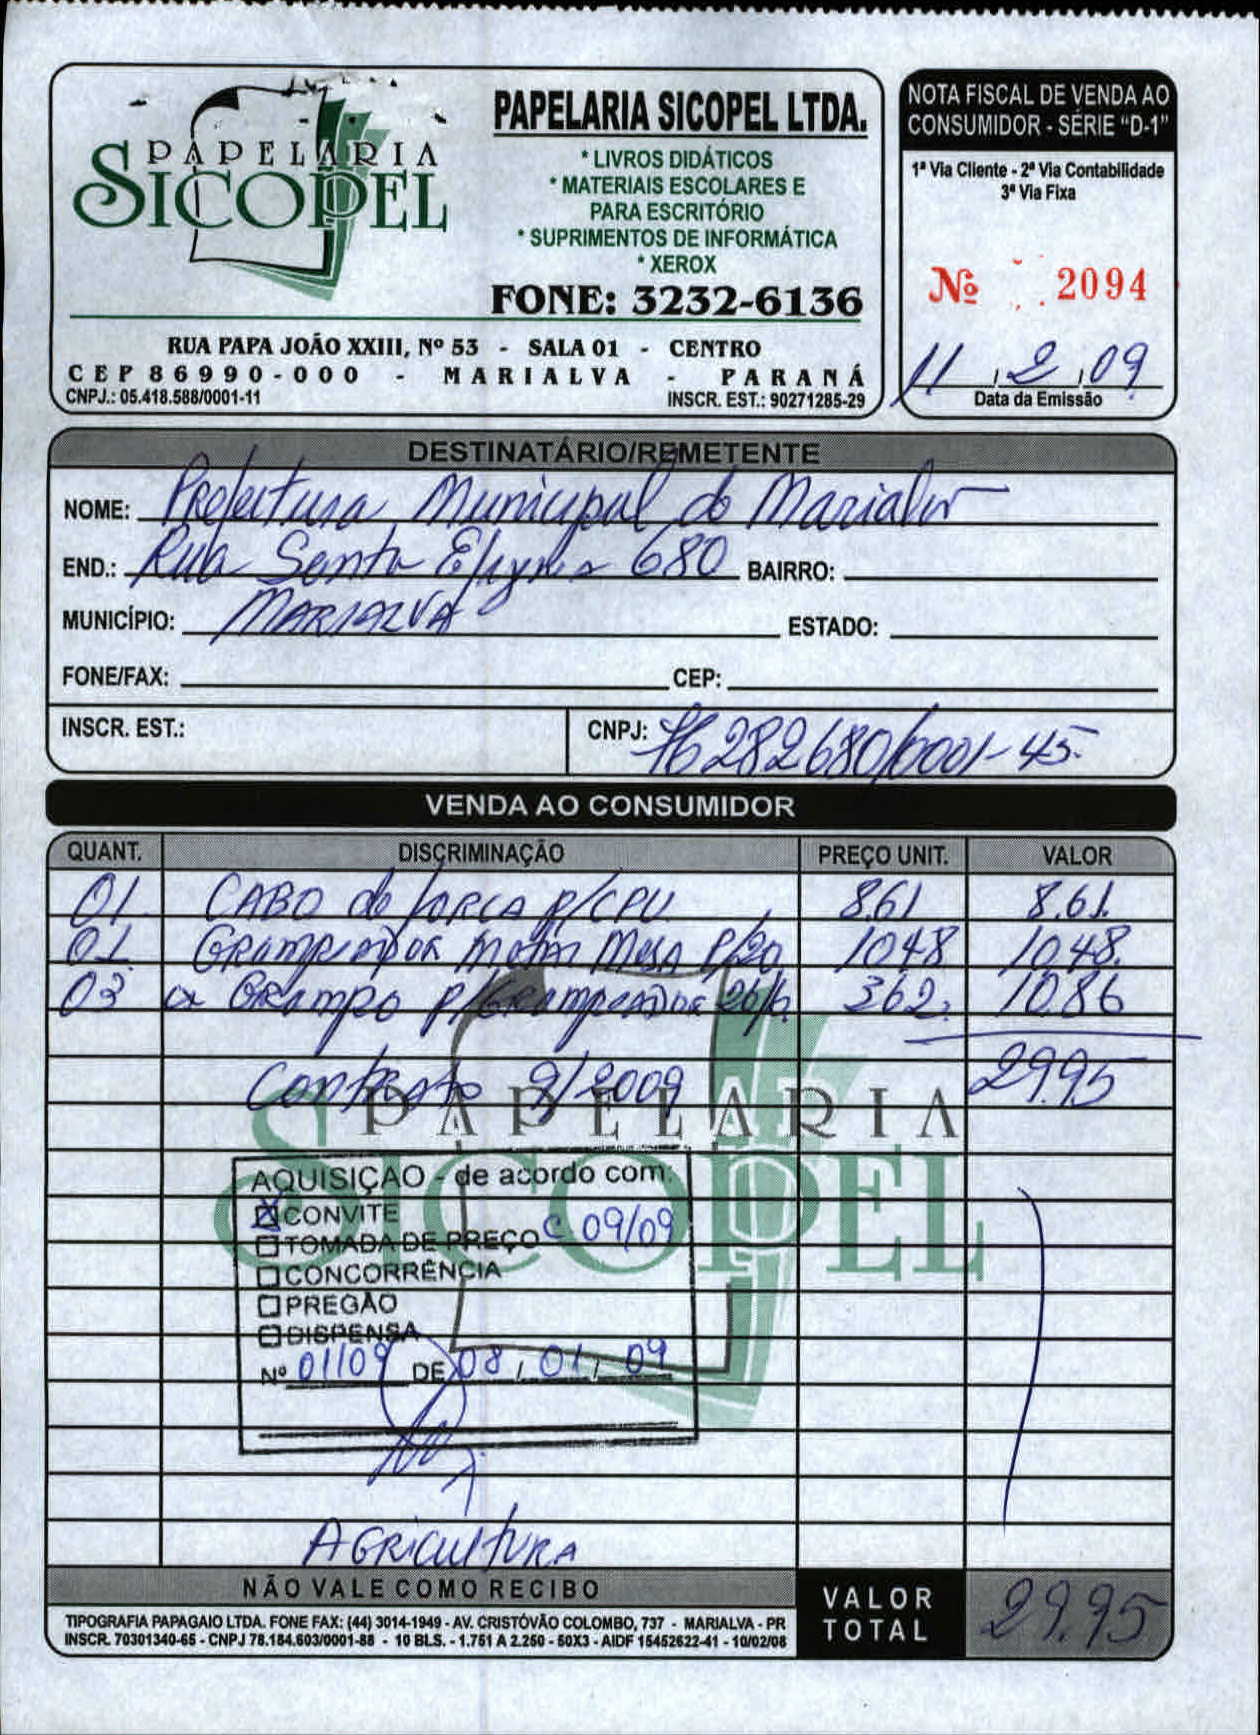 PAPELARIA
SICOPEL
PAPELARIA SICOPEL LTDA.
* LIVROS DIDÁTICOS
* MATERIAIS ESCOLARES E
PARA ESCRITÓRIO
* SUPRIMENTOS DE INFORMÁTICA
* XEROX
FONE: 3232-6136
RUA PAPA JOÃO XXIII, Nº 53 - SALA 01 - CENTRO
CEP 86990-000 - MARIALVA - PARANÁ
CNPJ.: 05.418.588/0001-11 INSCR. EST.: 90271285-29
NOTA FISCAL DE VENDA AO
CONSUMIDOR - SÉRIE “D-1”
1ª Via Cliente - 2ª Via Contabilidade
3ª Via Fixa
Nº 2094
11, 2, 09
Data da Emissão
DESTINATÁRIO/REMETENTE
NOME: Prefeitura Municipal de Marialva
END.: Rua Santa 680 BAIRRO:
MUNICÍPIO: MARIALVA ESTADO:
FONE/FAX: CEP:
INSCR. EST.: CNPJ: 76282680/0001-45
VENDA AO CONSUMIDOR
QUANT. DISCRIMINAÇÃO PREÇO UNIT. VALOR
01 CABO de FORCA P/CPU 8,61 8,61
01 GRAMPEADOR MESA P/20 1048 1048
03 cx GRAMPO P/GRAMPEADOR 26/6 362 1086
29,95
Contrato 9/2009
PAPELARIA
SICOPEL
AQUISIÇÃO - de acordo com:
☒ CONVITE C 09/09
☐ TOMADA DE PREÇO
☐ CONCORRÊNCIA
☐ PREGÃO
☐ DISPENSA
Nº 01109 DE 08, 01, 09
AGRICULTURA
NÃO VALE COMO RECIBO
VALOR TOTAL 29,95
TIPOGRAFIA PAPAGAIO LTDA. FONE FAX: (44) 3014-1949 - AV. CRISTÓVÃO COLOMBO, 737 - MARIALVA - PR
INSCR. 70301340-65 - CNPJ 78.184.603/0001-88 - 10 BLS. - 1.751 A 2.250 - 50X3 - AIDF 15452622-41 - 10/02/08